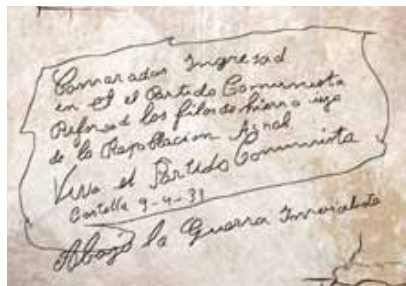 Camaradas Ingresad
en el el Partido Comunista
Reforsad las filas de hierro
de la Repoblacion Agral
Viva el Partido Comunista
Castella 9-4-33
Abajo la Guerra